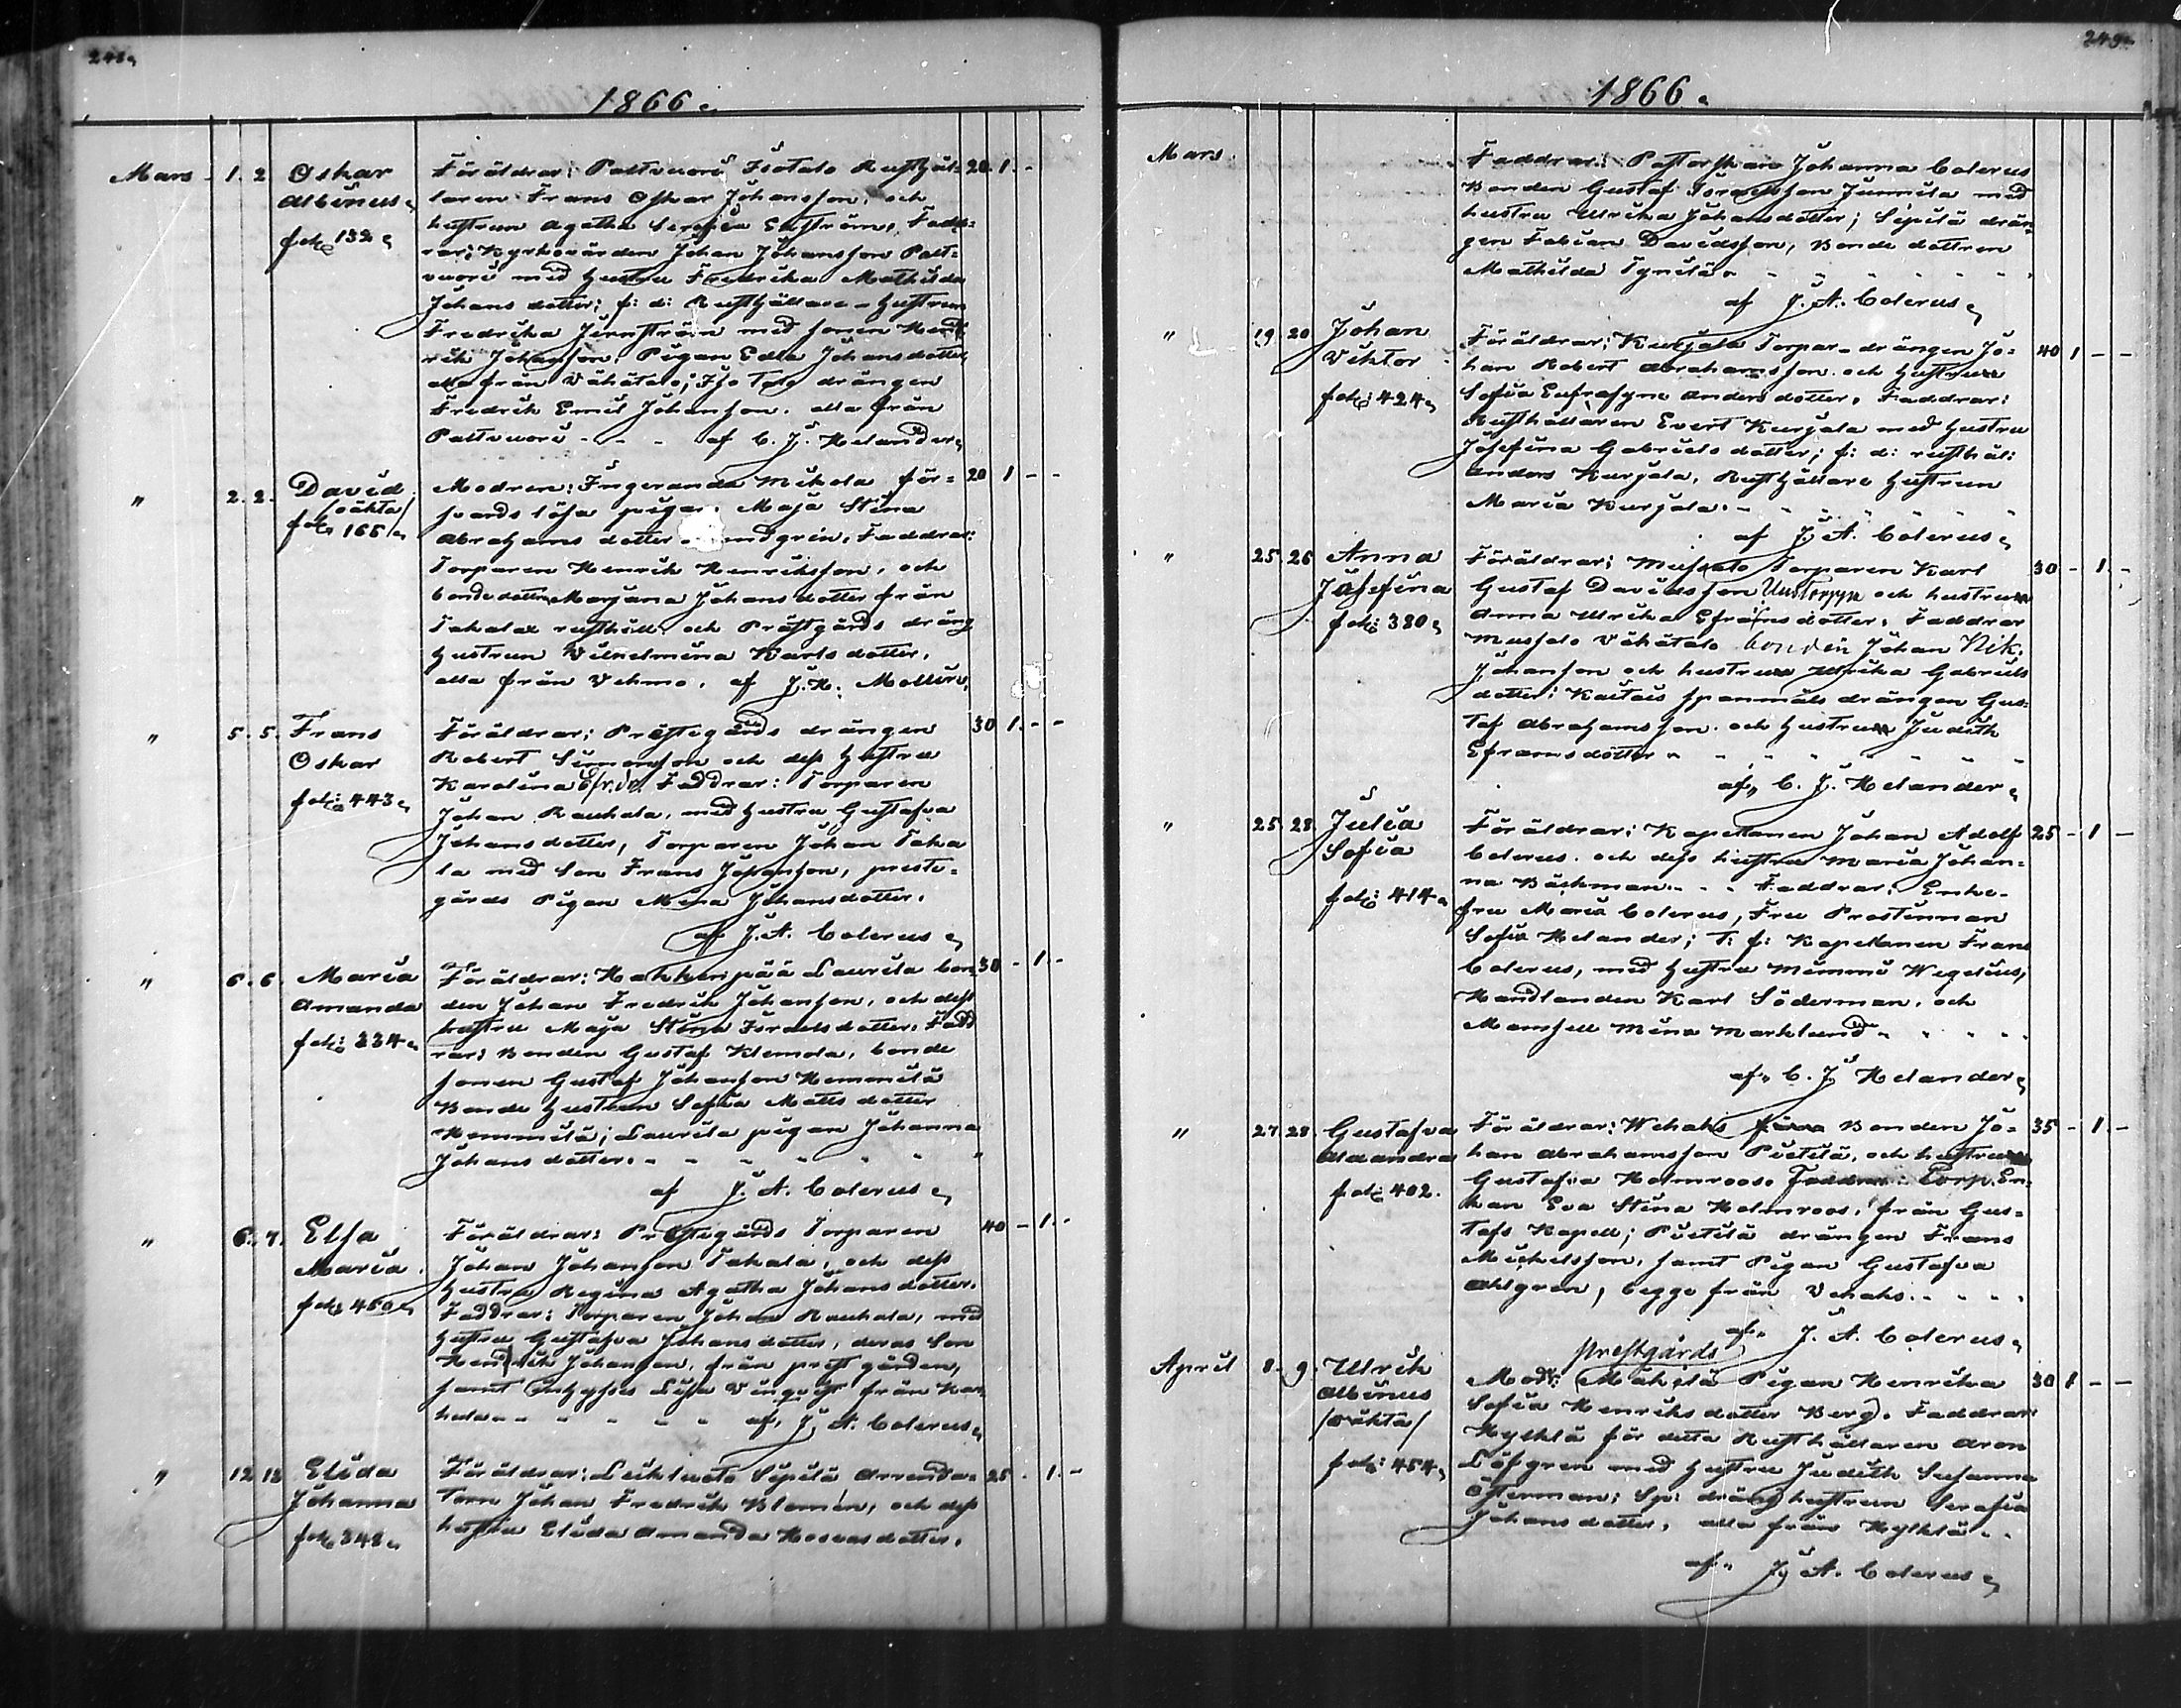 248.
1866.
Mars 1. 2. Oskar Albinus fol: 132. Föräldrar: Palsvuori Isotalo Rusthål- 20. 1. -
laren Frans Oskar Johansson, och
hustrun Agatha Serafia Enström, Fadd-
rar: Kyrkovärden Johan Johansson Palt-
vuori med Hustru Fredrika Mathilda
Johans dotter; f: d: Rusthållare-Hustrun
Fredrika Jernström med sonen Hend-
rik Johansson, Pigan Edla Johansdotter,
alla från Vähätalo; Iso Talo drängen
Fredrik Emil Johansson. alla från
Paltvuori - - - af C. J. Helander.
" 2. 2. David /oäkta/ fol: 165. Modren: Ingeranda Mikola för- 20 1 - -
svarslösa pigan Maja Stina
Abrahams dotter Faddrar:
Torparen Henrik Henriksson, och
bondedottren Marjana Johans dotter från
Takala rusthåll, och Prästgårds dräng
Hustrun Wilhelmina Karls dotter,
alla från Vehmo. af J. H. Mollin.
" 5. 5. Frans Oskar fol: 443. Föräldrar: Prästegårds drängen 30 1. - -
Robert Simonsson och dess Hustru
Karolina Efr.dr. Faddrar: Torparen
Johan Rauhala, med Hustru Gustafva
Johans dotter, Torparen Johan Taka
la med Son Frans Johansson, preste-
gårds Pigan Mina Johansdotter.
af J. A. Colerus.
" 6. 6. Maria Amanda fol: 334. Föräldrar: Hakkenpää Laurila bon- 30 - 1. -
den Johan Fredrik Johansson, och dess
hustru Maja Stina Israelsdotter. Fadd
rar: Bonden Gustaf Klemola, bonde
sonen Gustaf Johansson Hemmilä
Bonde Hustrun Sofia Matts dotter
Hemmilä; Laurila pigan Johanna
Johans dotter. " " " " "
af J. A. Colerus.
" 6. 7. Elsa Maria fol: 450. Föräldrar: Prästegårds Torparen 40 - 1. -
Johan Johansson Takala, och dess
Hustru Regina Agatha Johans dotter.
Faddrar: Torparen Johan Rauhala, med
Hustru Gustafva Johans dotter, deras Son
Hendrik Johansson, från prestgården,
samt Inhyses Lisa Vinqvist från Kau
hala " " " " af J. A. Colerus.
" 12. 13 Elida Johanna fol: 348. Föräldrar: Leikluoto Sipilä Arrenda- 25. 1. -
torn Johan Fredrik Blomen, och dess
hustru Elida Amanda dotter.
249.
1866.
Mars. Faddrar: Pastorskan Johanna Colerus
Bonden Gustaf Israelsson Junnila med
hustru Ulrika Johansdotter; Sipilä drän-
gen Fabian Davidsson, Bonde dottren
Mathilda Tynilä " " " " "
af J. A. Colerus.
" 19. 20 Johan Viktor fol: 424. Föräldrar: Kurjala Torpar-drängen Jo- 40 1 - -
han Robert Abrahamsson och Hustrun
Sofia Eufrosyne Anders dotter. Faddrar:
Rusthållaren Evert Kurjala med Hustru
Josefina Gabriels dotter; f: d: rusthål:
Anders Kurjala, Rusthållare Hustrun
Maria Kurjala. " " " " "
af J. A. Colerus.
" 25. 26 Anna Josefina fol: 380. Föräldrar: Mussalo Torparen Karl 30 - 1. -
Gustaf Davidsson Uustorppa och hustrun
Anna Ulrika Efraims dotter. Faddrar
Mussalo Vähätalo bonden Johan Nik.
Johansson och hustrun Ulrika Gabriels
dotter; Kaitais spanmåls drängen Gus-
taf Abrahamsson och Hustrun Judith
Eframsdotter " " " " "
af C. J. Helander.
" 25. 28. Julia Sofia fol: 414. Föräldrar: Kapellanen Johan Adolf 25 - 1 -
Colerus. och dess hustru Maria Johan-
na Bäckman. - - Faddrar: Enke-
fru Maria Colerus, Fru Prostinnan
Sofia Helander; T: f: Kapellanen Frans
Colerus, med Hustru Mimmi Wegelius,
Handlanden Karl Söderman, och
Mamsell Mina Marklund " " " "
af C. J. Helander.
" 27. 28. Gustafva Alexandra fol: 402. Föräldrar: Wehaks Bonden Jo- 35 - 1. -
han Abrahamsson Pietilä, och hustrun
Gustafva Holmroos. Faddrar: Torp. En-
kan Eva Stina Holmroos, från Gus-
tafs Kapell; Pietilä drängen Frans
Michelsson, samt Pigan Gustafva
Ahlgren, begge från Vehaks. " " "
af J. A. Colerus.
prestgårds
April 8. 9. Ulrik Albinus /oäkta/ fol: 454. Modr: (Mäkelä Pigan Henrika 30 1 - -
Sofia Henriks dotter Berg). Faddrar:
Nylklä för detta Rusthållaren Aron
Löfgren med Hustru Judith Susanna
Österman; Sp: dräng hustrun Serafia
Johans dotter, alla från Nylklä. "
af J. A. Colerus.